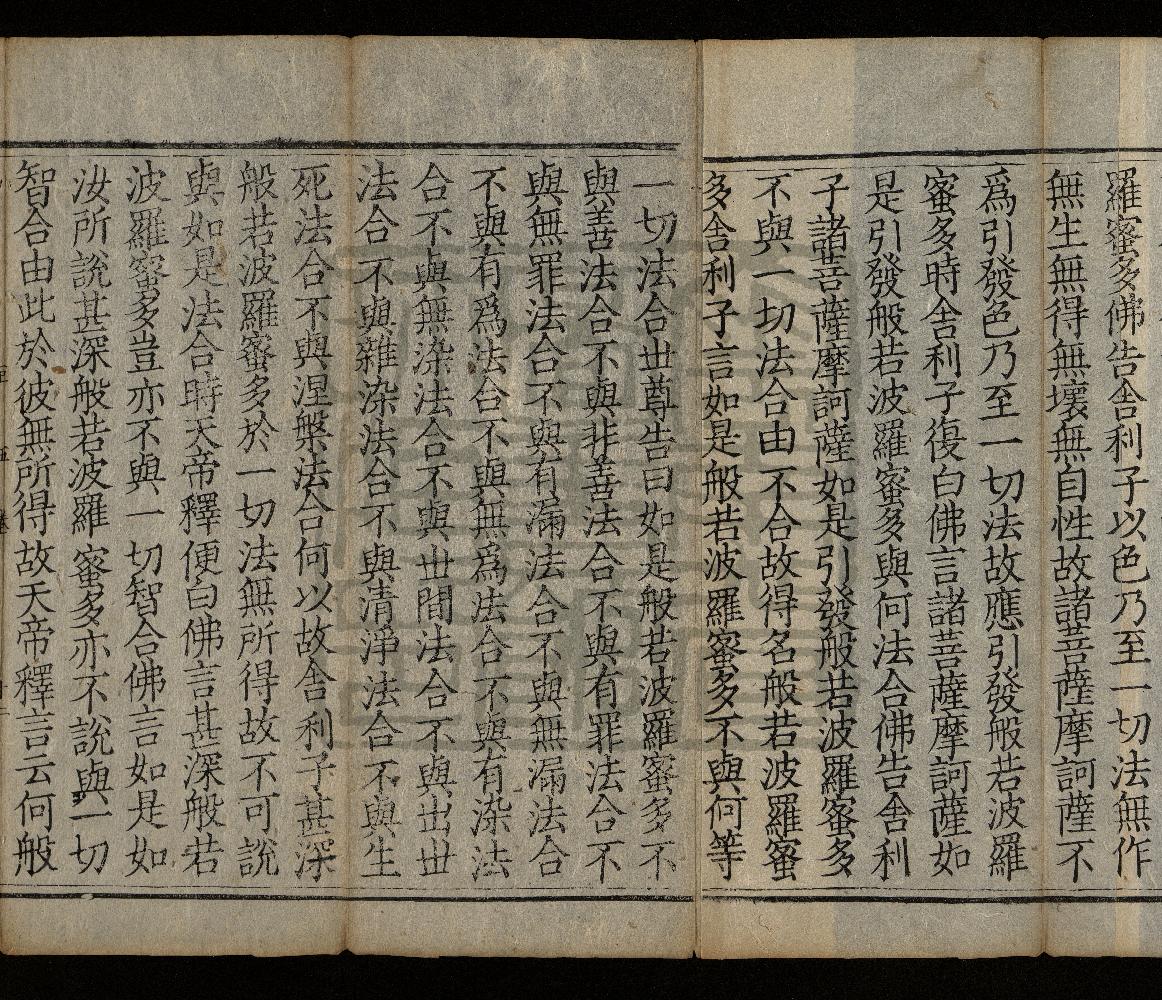 羅蜜多佛告舍利子以色乃至一切法無作
無生無得無壞無自性故諸菩薩摩訶薩不
爲引發色乃至一切法故應引發般若波羅
蜜多時舍利子復白佛言諸菩薩摩訶薩如
是引發般若波羅蜜多與何法合佛告舍利
子諸菩薩摩訶薩如是引發般若波羅蜜多
不與一切法合由不合故得名般若波羅蜜
多舍利子言如是般若波羅蜜多不與何等
一切法合世尊告曰如是般若波羅蜜多不
與善法合不與非善法合不與有罪法合不
與無罪法合不與有漏法合不與無漏法合
不與有爲法合不與無爲法合不與有染法
合不與無染法合不與世間法合不與出世
法合不與雜染法合不與清淨法合不與生
死法合不與涅槃法合何以故舍利子甚深
般若波羅蜜多於一切法無所得故不可說
與如是法合時天帝釋便白佛言甚深般若
波羅蜜多豈亦不與一切智合佛言如是如
汝所說甚深般若波羅蜜多亦不說與一切
智合由此於彼無所得故天帝釋言云何般